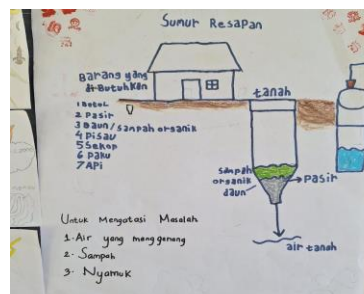 Sumur Resapan
Barang yang
di Butuhkan
1 Botol
2 Pasir
3 Daun/sampah organik
4 Pisau
5 Sekop
6 Paku
7 Api
tanah
sampah
organik
daun
Pasir
air tanah
Untuk Mengatasi Masalah
1. Air yang menggenang
2. Sampah
3. Nyamuk